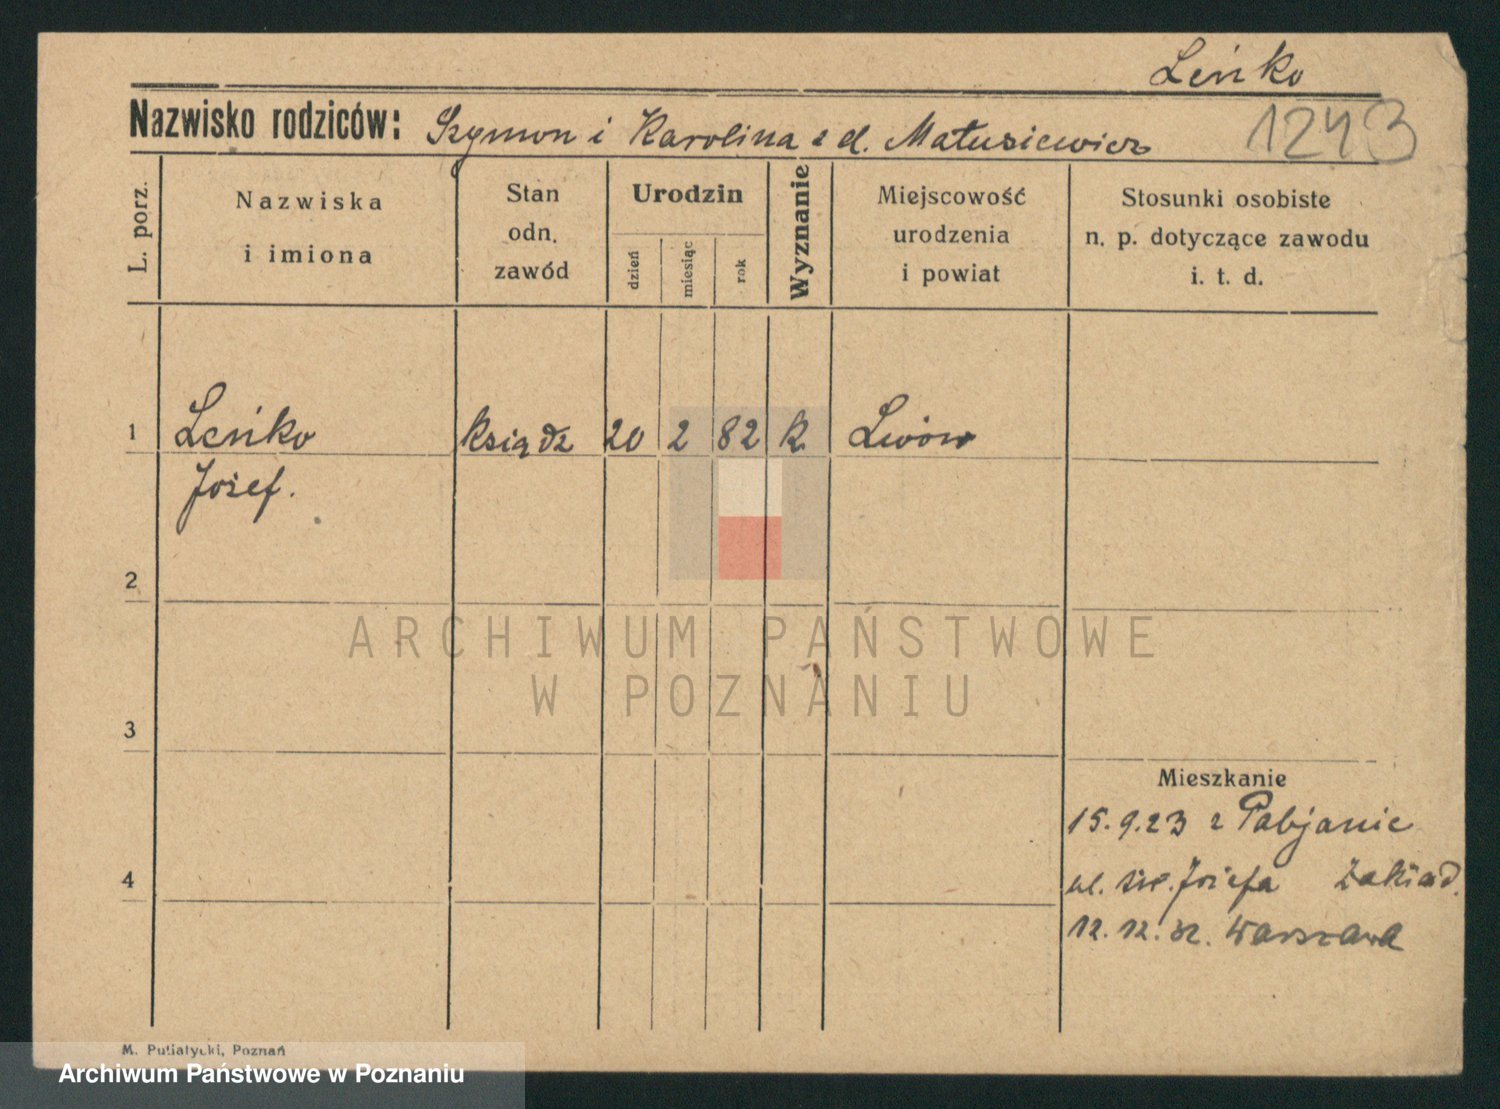 Leńko
Nazwisko rodziców: Szymon i Karolina z d. Matusiewicz
1243
L. porz.
Nazwiska
i imiona
Stan
odn.
zawód
Urodzin
dzień
miesiąc
rok
Wyznanie
Miejscowość
urodzenia
i powiat
Stosunki osobiste
n. p. dotyczące zawodu
i. t. d.
1 Leńko ksiądz 20 2 82 k. Lwów
Józef.
2
ARCHIWUM PAŃSTWOWE
W POZNANIU
3
Mieszkanie
15.9.23 z Pabjanic
4
ul. św. Józefa Zakład.
12.12.32. Warszawa
M. Putiatycki, Poznań
Archiwum Państwowe w Poznaniu